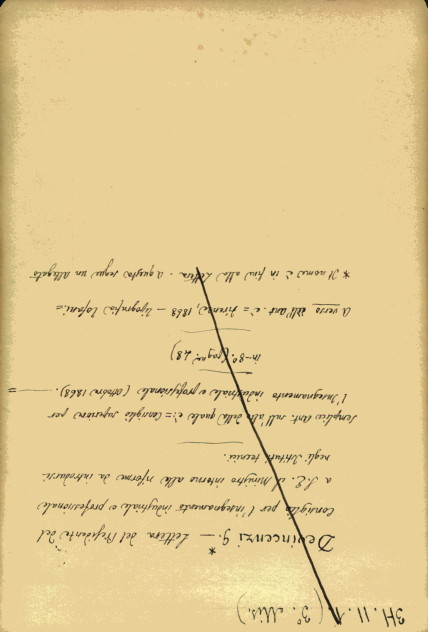 3H. 11. 1. (3° Mis.)
*
Devincenzi G. — Lettera del Presidente del
Consiglio per l'insegnamento industriale e professionale
a S. E. il Ministro intorno alle riforme da introdursi
negli Istituti tecnici.
semplice Ant. sull'alto della quale, è: = Consiglio superiore per
l'insegnamento industriale e professionale (ottobre 1868). =
in-8°. (pag. 48)
A verso dell'Ant. è: = Firenze, 1868 — Tipografia Tofani =
* Il nome è in fine alla Lettera. A questa segue un allegato